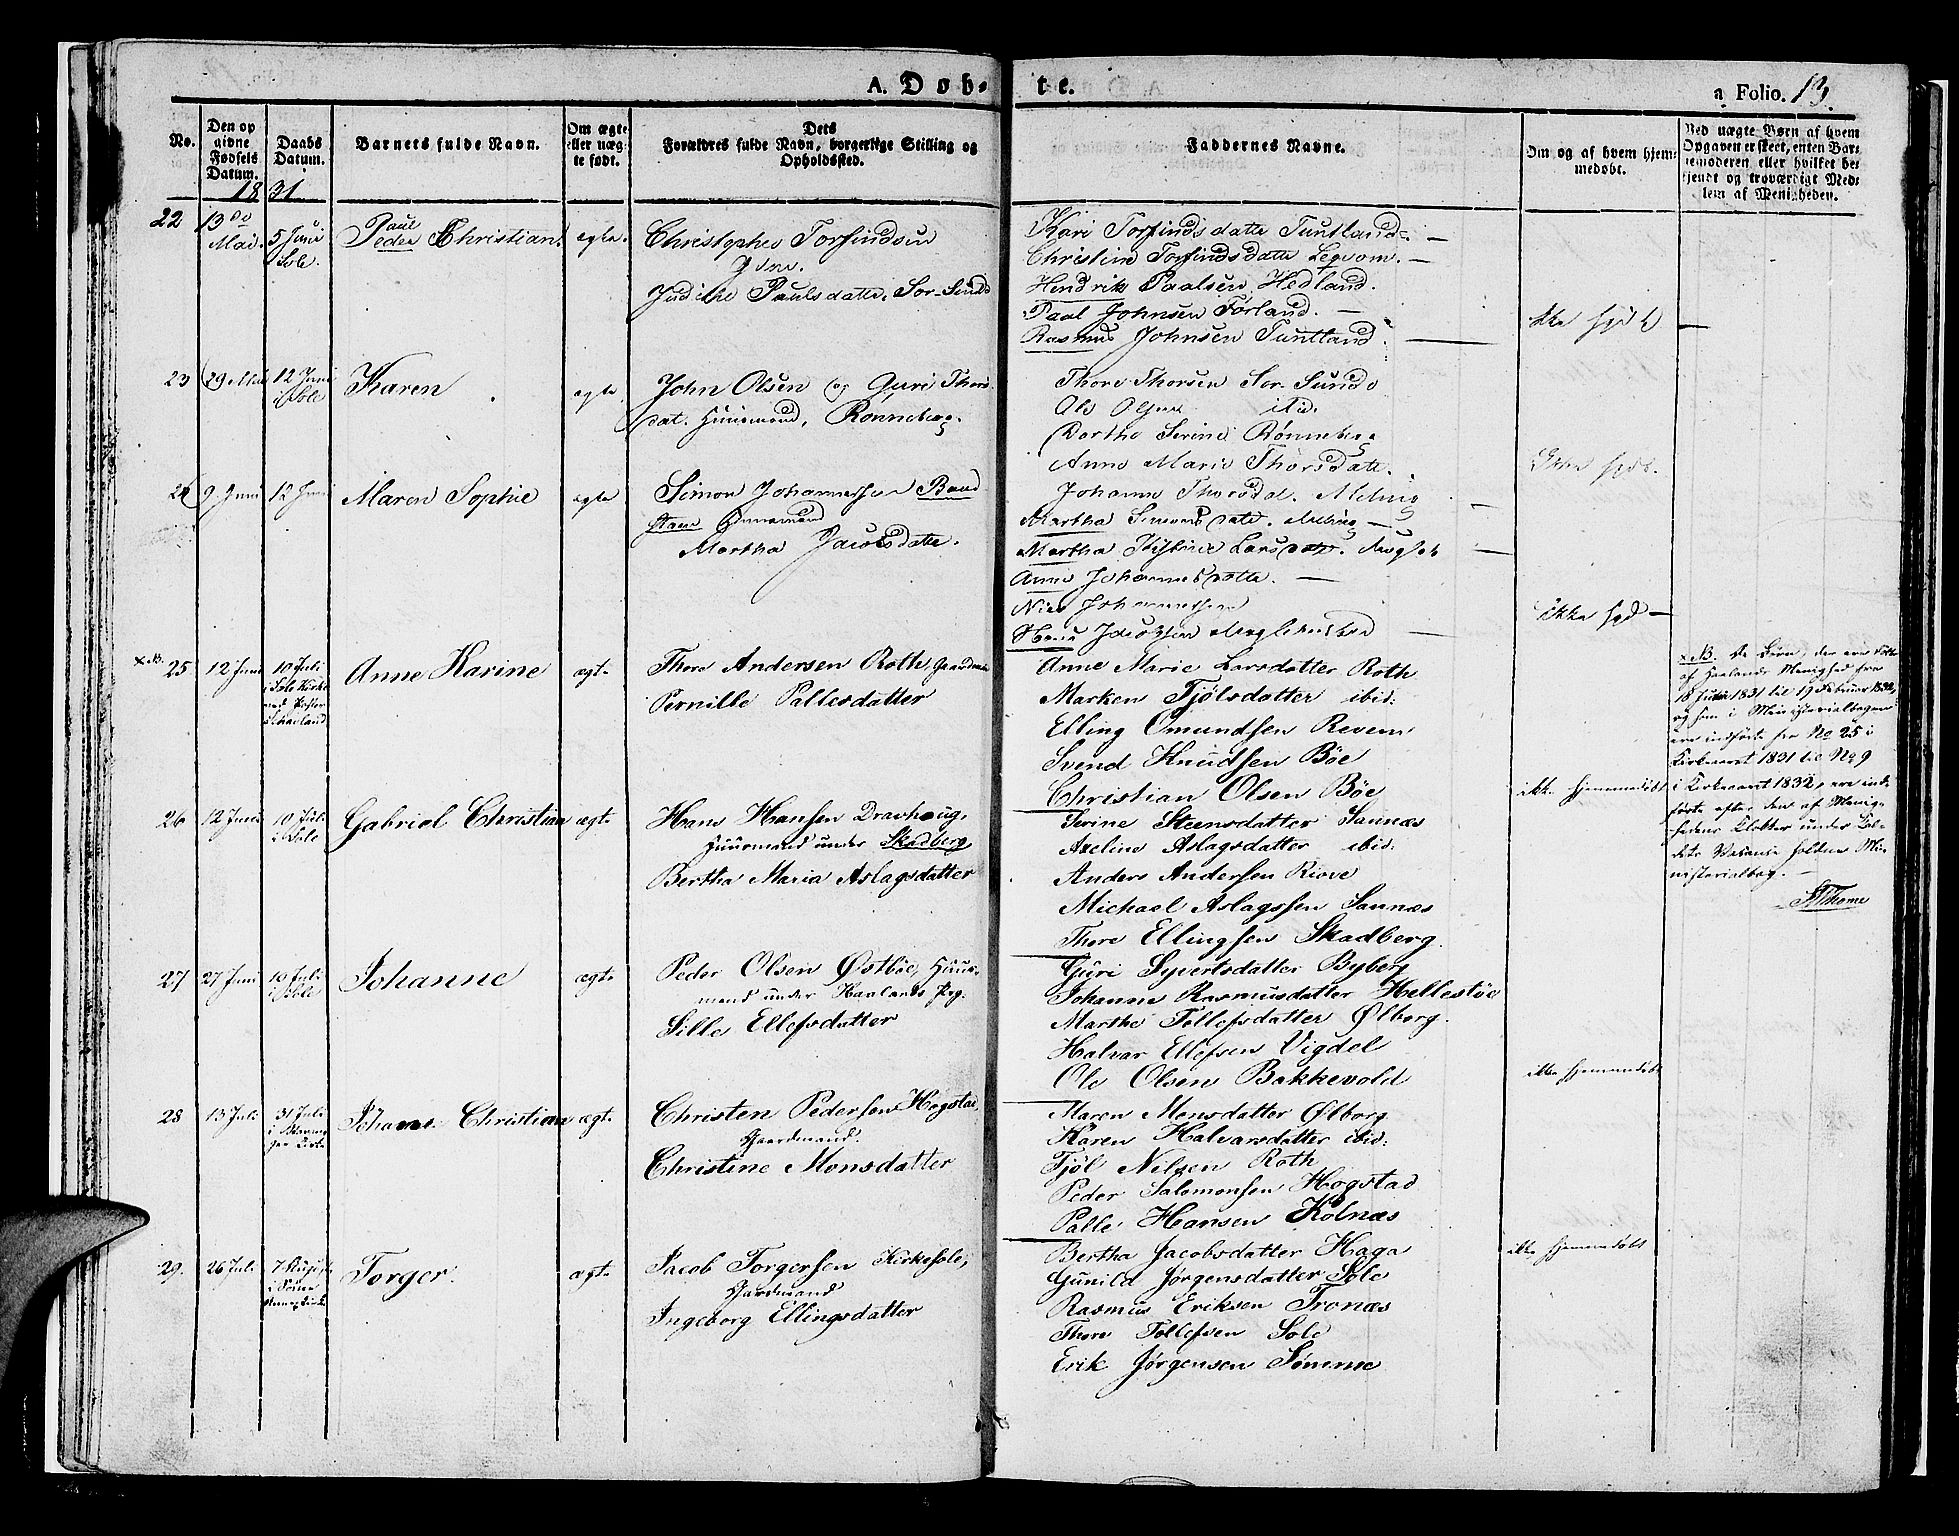 A. Døb-
te.
a Folio. 13.
No.
Den op
givne
Fødsels
Datum.
Daabs
Datum.
Barnets fulde Navn.
Om ægte
eller uæg-
te født.
Dets
Forældres fulde Navn, borgerlige Stilling og
Opholdssted.
Faddernes Navne.
Om og af hvem hjem-
medøbt.
Ved uægte Børn af hvem
Opgaven er skeet, enten Bar-
nemoderen eller hvilket be-
kjendt og troværdigt Med-
lem af Menigheden.
1831.
22
13de
Mai.
5 Juni
Sole.
Paul
Peder Christian.
egte.
Christopher Torfindsen
Judithe Paulsdatter, Sør-Sunde
Kari Torfindsdatter Tuntland. —
Christine Torfindsdatter —
Hendrik Paalsen Hedland.
Paal Johnsen Førland. —
Rasmus Johnsen Tuntland. —
ikke —
23
29 Mai
12 Juni
i Sole
Karen
egte.
John Olsen og Guri Thors-
dat. Huusmand, Rønneberg.
Thore Thorsen Sør-Sunde
Ole Olsen ibid.
Dorthe Serine Rønneberg
Anne Marie Thorsdatter.
24
9 Juni
12 Juni
Maren Sophie
egte
Simon Johannessen
Huusmand
Martha Jacobsdatter.
Johanne Thorsdat. Meling —
Martha Simonsdatter. Meling —
Martha Larsdatter. —
Anne Johannesdatter. —
Niels Johannessen
Hans Jacobsen —
ikke —
x NB.
25
12 Juni
10 Juli
i Sole Kirke
Anne Karine
ægte
Thore Andersen Roth, Gaardmand
Pernille Pallesdatter
Anne Marie Larsdatter Roth
Marken Fjølsdatter ibid:
Elling Omundsen Revem
Svend Knudsen Bøe
Christian Olsen Bøe
ikke hjemmedøbt
x NB. De Børn, der ere døbte
af Haalands Menighed fra
18 Juni 1831 til 19 Februar 1832,
og som i Ministerialbogen
ere indførte fra No 25 i
Kirkeaaret 1831 til No 9
i Kirkeaaret 1832, ere ind-
førte efter den af Menig-
hedens Klokker under Em-
bedets Vacance holdne Mi-
nisterialbog. —
Thome
26
12 Juni
10 Juli
i Sole
Gabriel Christian
ægte
Hans Hansen Dravhoug,
Huusmand under Skadberg
Bertha Maria Aslagsdatter
Serine Steensdatter Sannæs
Axeline Aslagsdatter ibid:
Anders Andersen Riove
Michael Aslagssen Sannæs
Thore Ellingsen Skadberg.
27
27 Juni
10 Juli
i Sole
Johanne
ægte
Peder Olsen Østbøe, Huus-
mand under Haalands Prg.
Sille Ellefsdatter
Guri Syvertsdatter Byberg
Johanne Rasmusdatter Hellestøe
Marthe Tollefsdatter Ølborg.
Halvar Ellefsen Vigdel
Ole Olsen Bakkevold
ikke hjemmedøbt
28
13 Juli
31 Juli
i Stavan-
ger Kirke
Johanne Christian
ægte
Christen Pedersen Hogstad,
Gaardmand.
Christine Monsdatter
Maren Monsdatter Ølborg
Karen Halvarsdatter ibid:
Fjøl Nilsen Roth
Peder Salomonsen Hogstad
Palle Hansen Kolnæs
29.
26 Juli
7 August
i Sole
Torger.
ægte
Jacob Torgersen Kirkesole,
Gaardmand
Ingeborg Ellingsdatter
Bertha Jacobsdatter Haga
Gunild Jørgensdatter Sole
Rasmus Eriksen Tronæs
Thore Tollefsen Sole
Erik Jørgensen Sømme
ikke hjemmedøbt